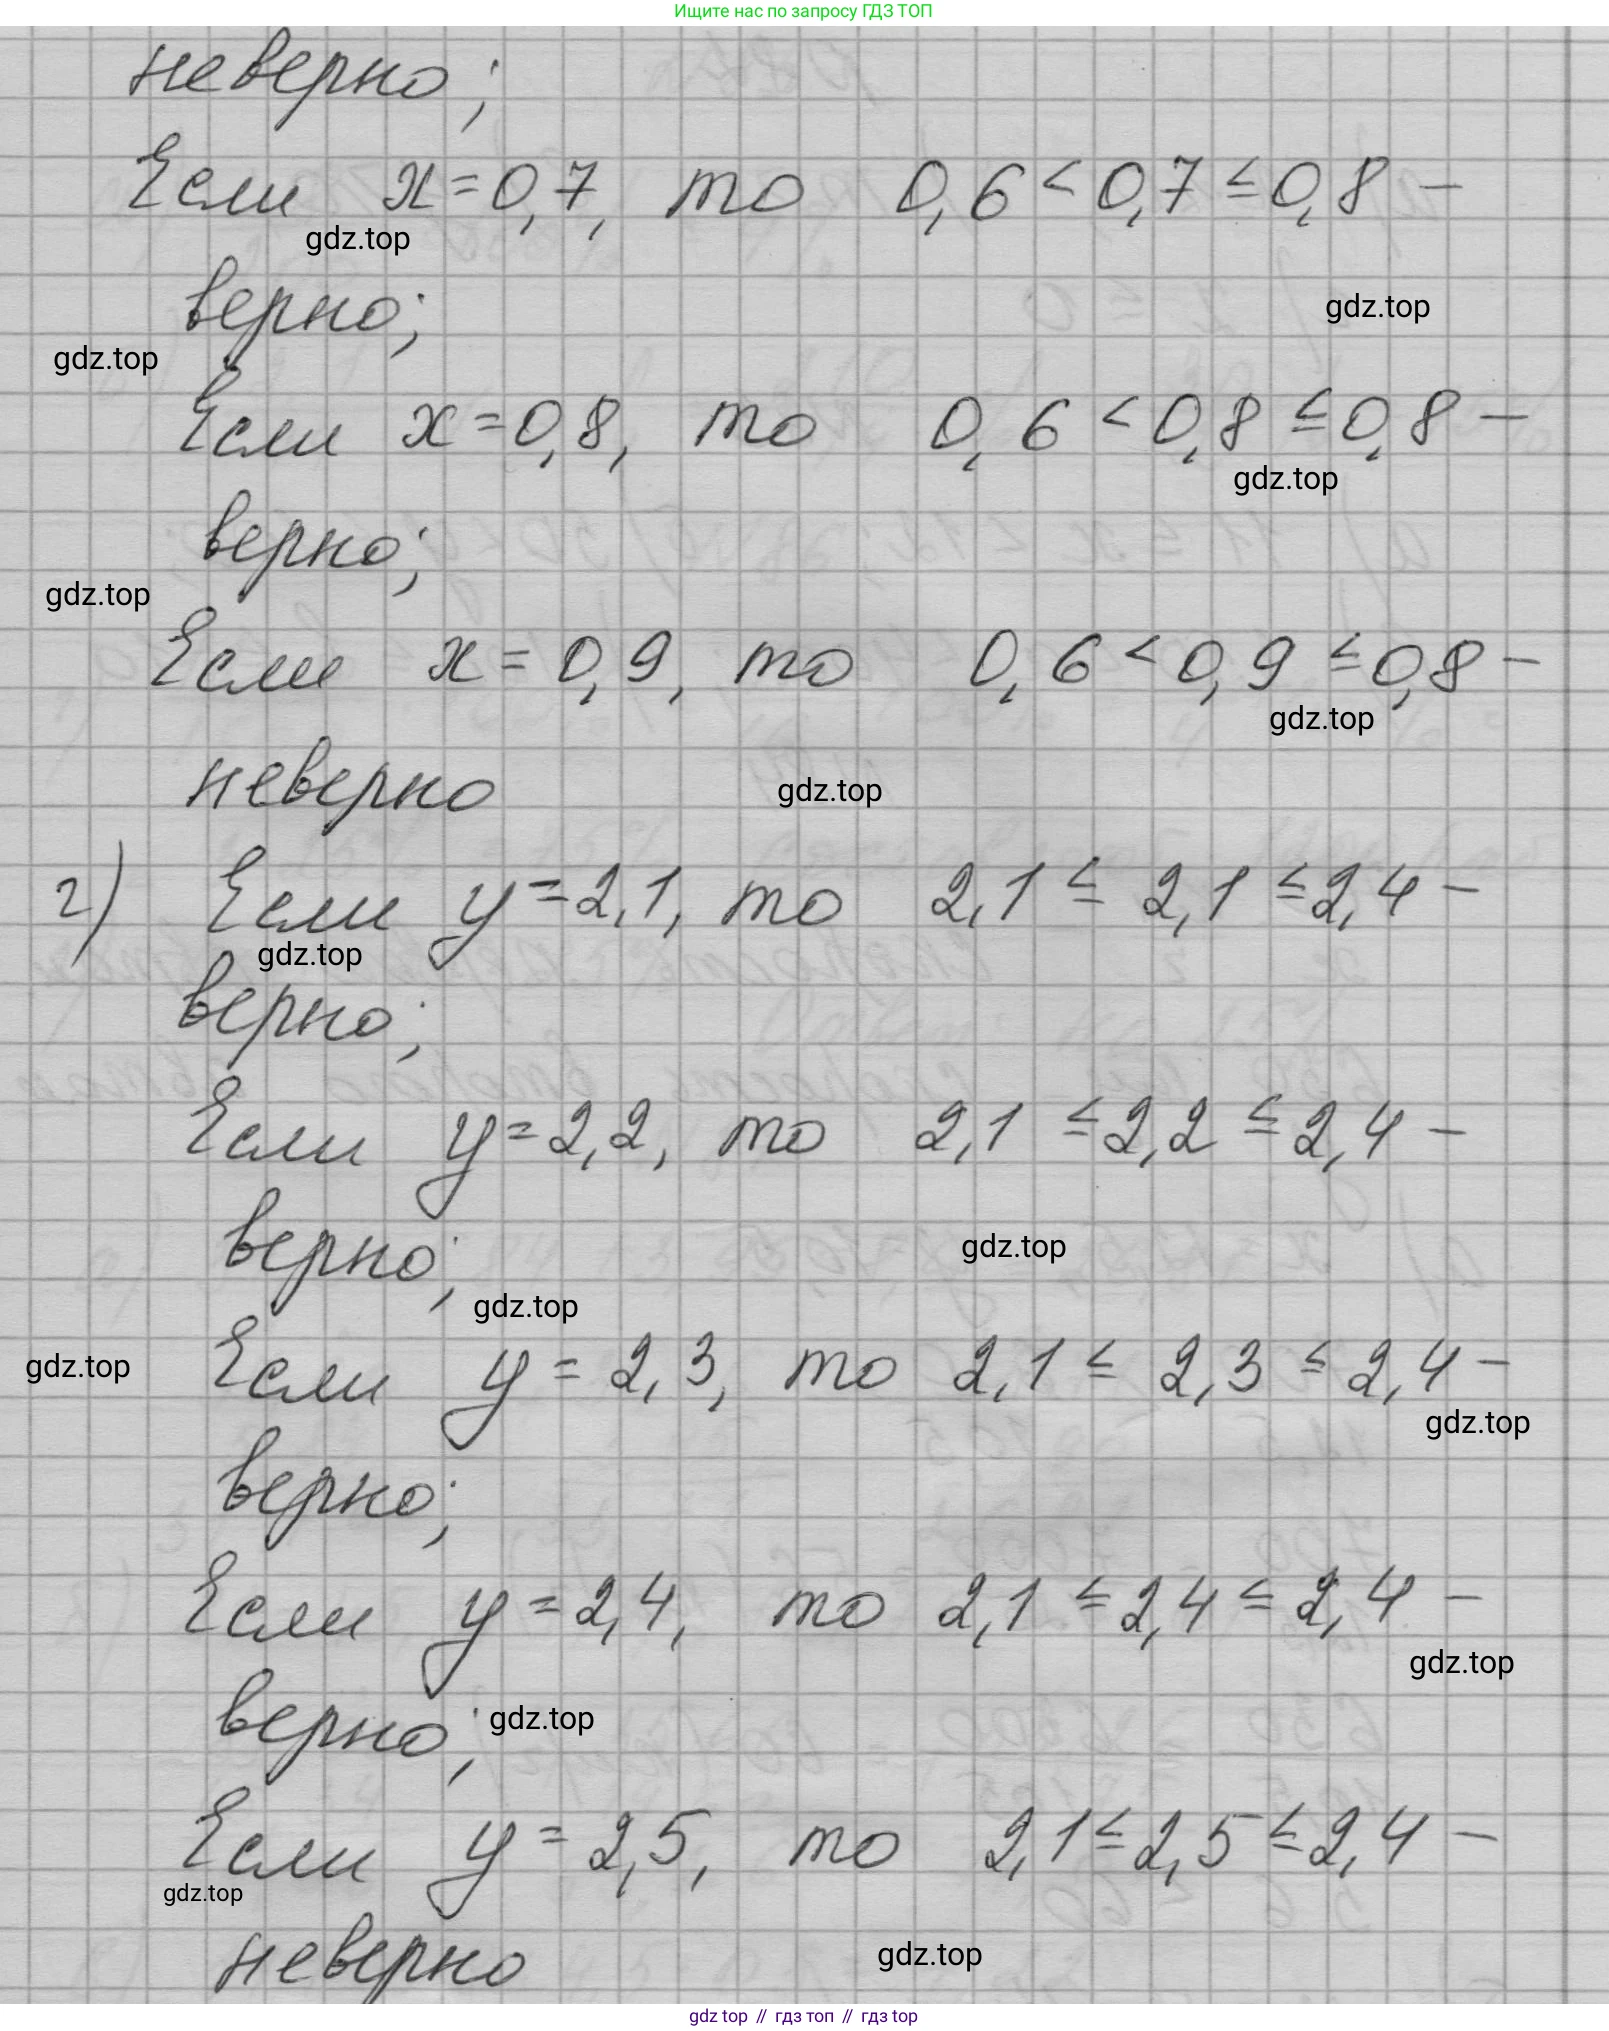 Ищите нас по запросу ГДЗ ТОП
неверно;
Если x=0,7, то 0,6<0,7≤0,8 –
gdz.top
верно;
gdz.top
gdz.top
Если x=0,8, то 0,6<0,8≤0,8 –
gdz.top
верно;
gdz.top
Если x=0,9, то 0,6<0,9≤0,8 –
gdz.top
неверно
gdz.top
г) Если y=2,1, то 2,1≤2,1≤2,4 –
gdz.top
верно;
Если y=2,2, то 2,1≤2,2≤2,4 –
верно;
gdz.top
gdz.top
Если y=2,3, то 2,1≤2,3≤2,4 –
gdz.top
gdz.top
верно;
Если y=2,4, то 2,1≤2,4≤2,4 –
gdz.top
верно;
gdz.top
Если y=2,5, то 2,1≤2,5≤2,4 –
gdz.top
неверно
gdz.top
gdz top // гдз топ // гдз top